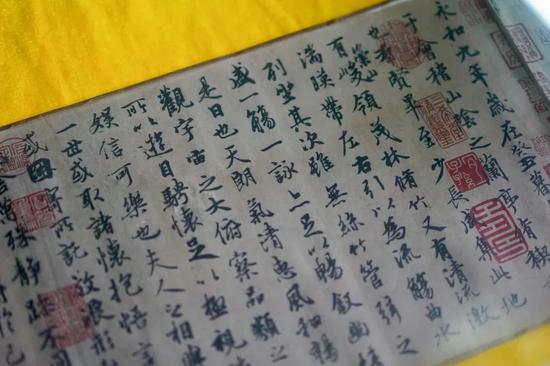 永和九年歲在癸丑
于會稽山陰之蘭亭脩禊
也群賢畢至少長咸集此地
有崇山峻領茂林脩竹又有清流激
湍暎帶左右引以為流觴曲水
列坐其次雖無絲竹管弦之
盛一觴一詠亦足以暢敘幽情
是日也天朗氣清惠風和暢
觀宇宙之大俯察品類之
所以遊目騁懷足以極視
娛信可樂也夫人之相與
一世或取諸懷抱悟言
或因寄所託放浪形
殊靜躁不同